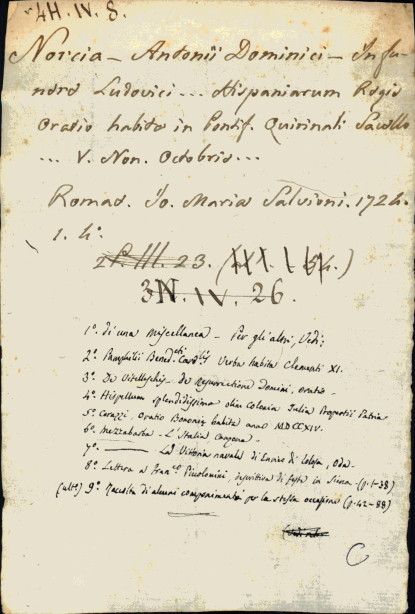 4H. IV. 8.
Norcia - Antonii Dominici - In fu-
nere Ludovici ... Hispaniarum Regis
Oratio habita in Pontif. Quirinali Sacello
... V. Non. Octobris ...
Romae. Jo. Maria Salvioni. 1724.
1. 4º.
2P. III. 23.
3N. IV. 26.
1º. di una Miscellanea - Per gli altri, Vedi:
2º. Pamphilii Bened.cti Card.lis Verba habita Clementi XI.
3º. De Vitelleschis - de Resurrectione Domini, oratio -
4º. Hispellum splendidissima olim Colonia Julia Propertii Patria
5º. Corazzi, Oratio Bononiæ habita anno MDCCXIV.
6º. Mezzabarba - L'Italia
7º. — La Vittoria navale di Oda.
8º. Lettera a Fran.co Piccolomini, descrittiva di festa in Siena (p. 1-38)
(ult.º) 9º. Raccolta di alcuni componimenti per la stessa occasione (p. 42-88)